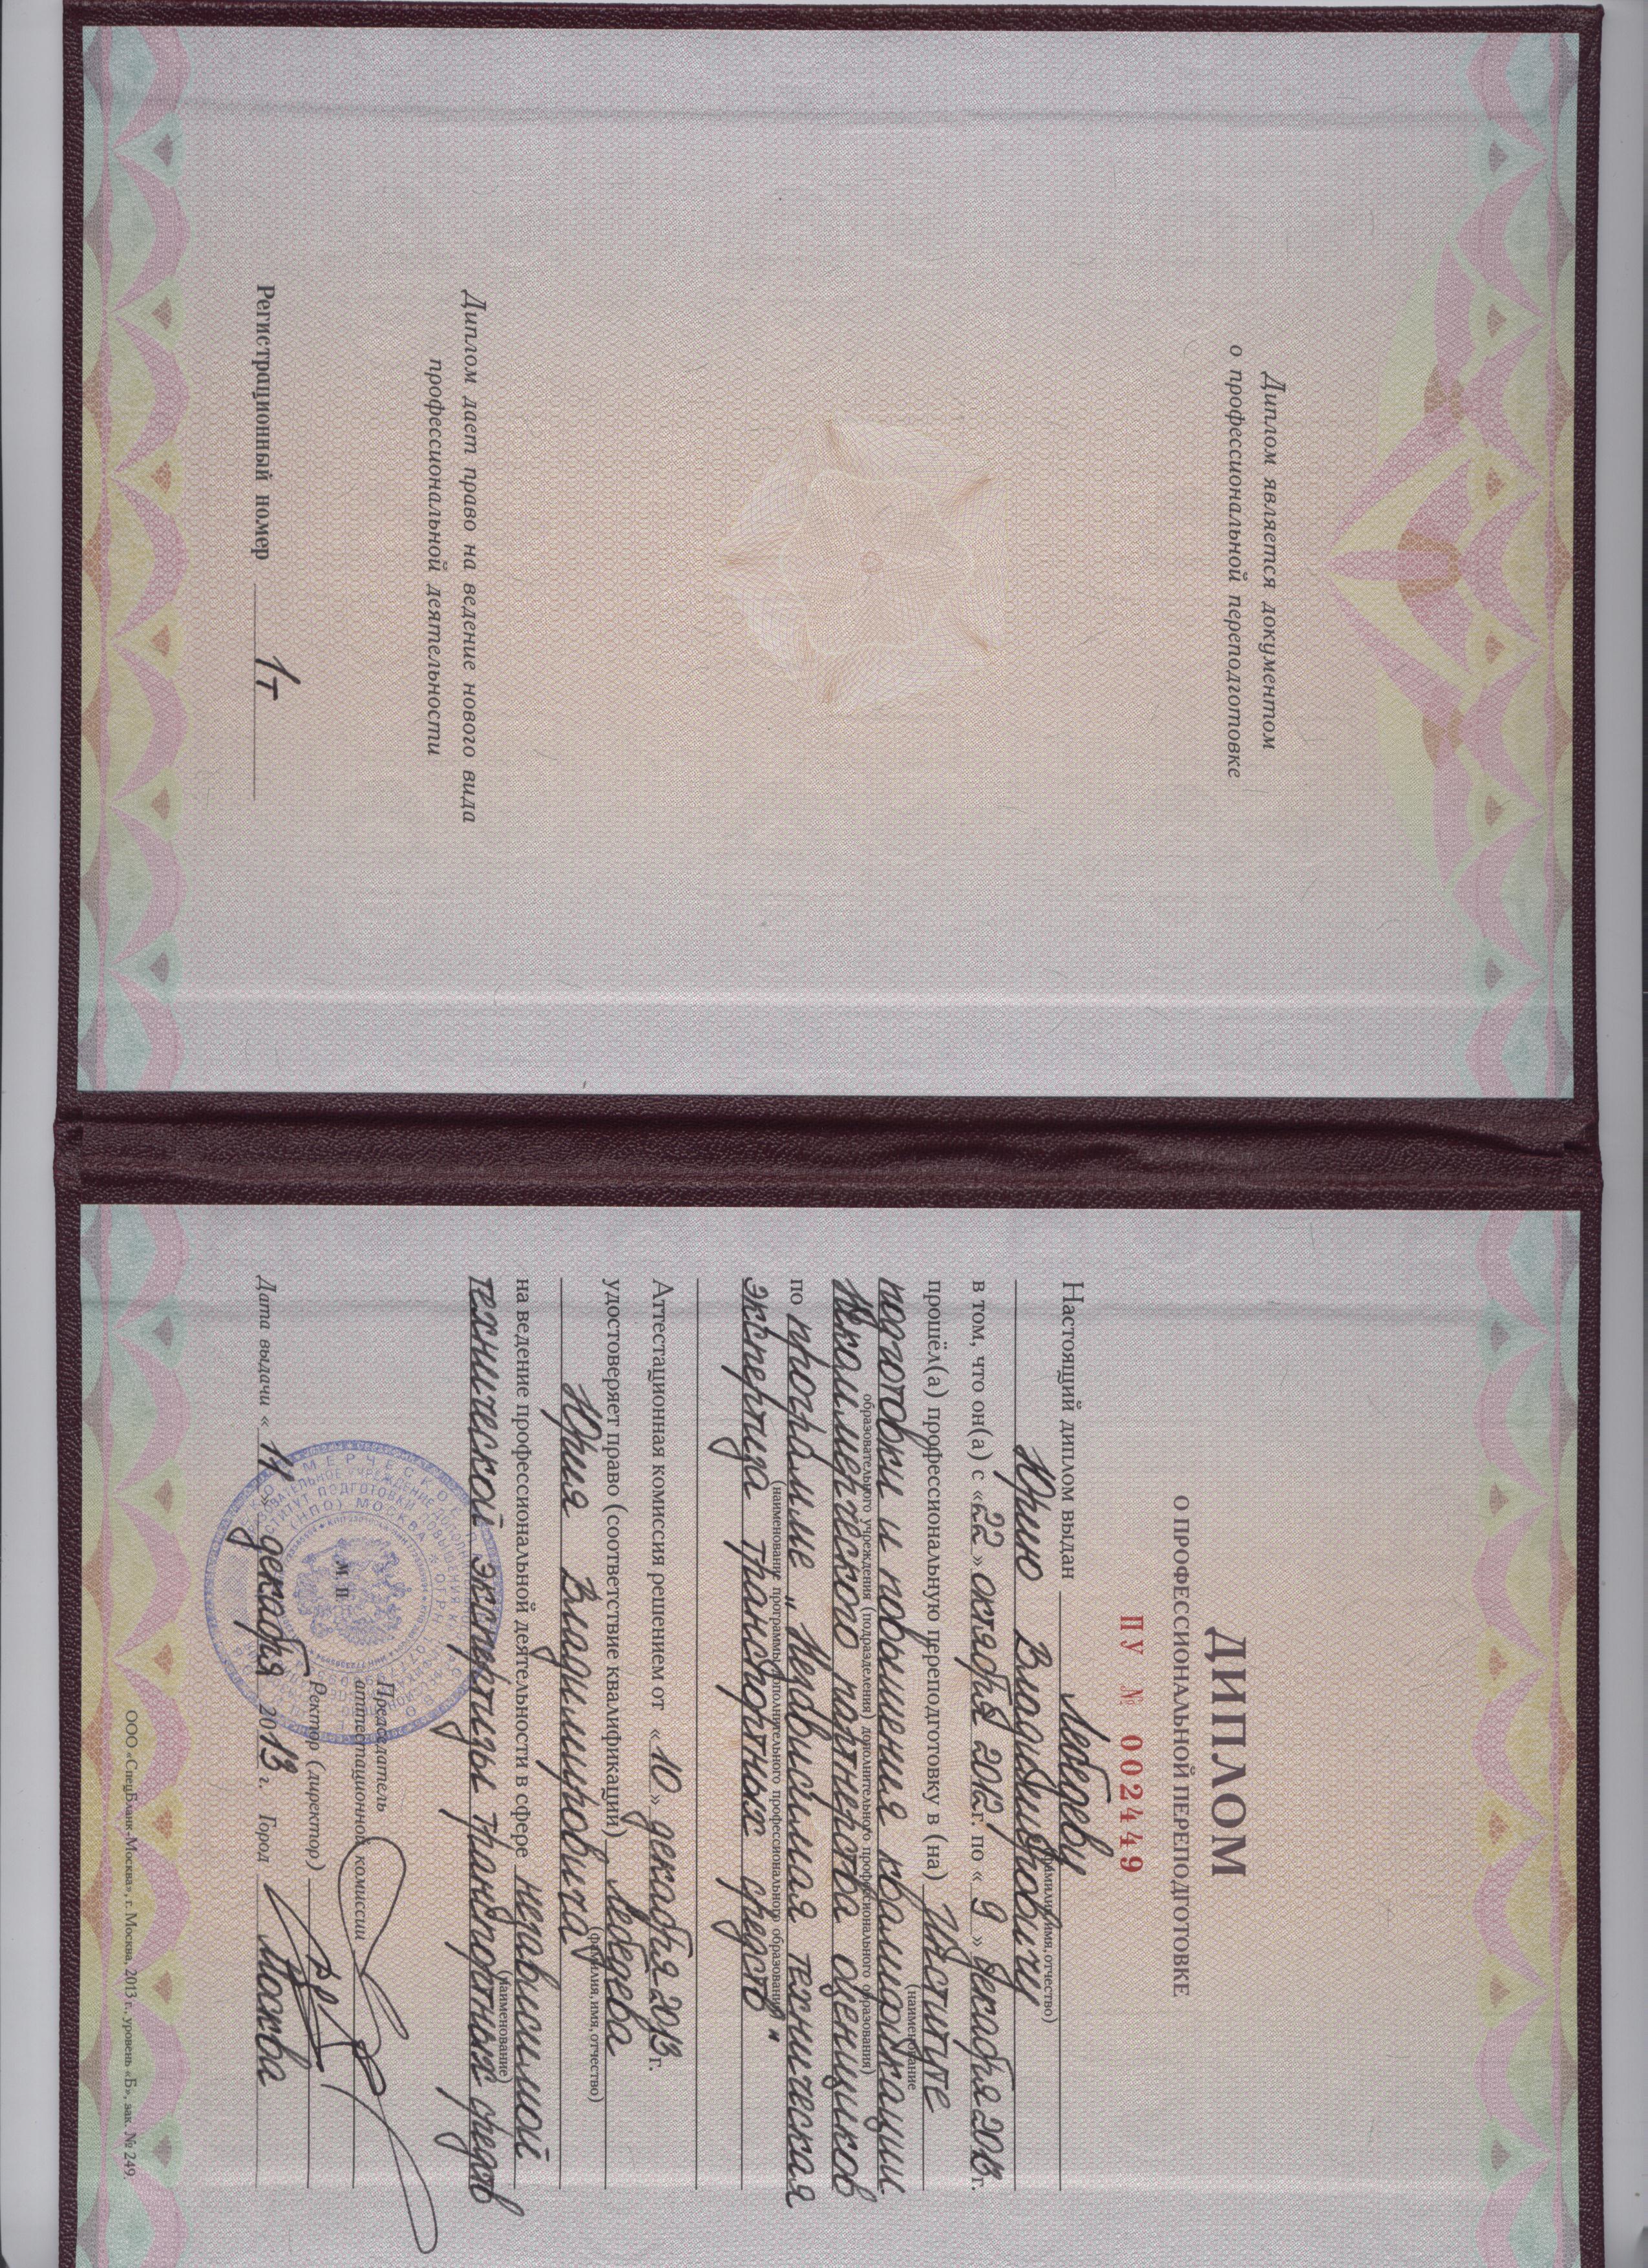 Диплом является документом
о профессиональной переподготовке
Диплом дает право на ведение нового вида
профессиональной деятельности
Регистрационный номер 1т
ДИПЛОМ
О ПРОФЕССИОНАЛЬНОЙ ПЕРЕПОДГОТОВКЕ
ПУ № 002449
Настоящий диплом выдан Лебедеву
(фамилия, имя, отчество)
Юрию Владимировичу
в том, что он(а) с «22» октября 2012 г. по «9» декабря 2013 г.
прошёл(а) профессиональную переподготовку в (на) Институте
(наименование
подготовки и повышения квалификации
образовательного учреждения (подразделения) дополнительного профессионального образования)
Некоммерческого партнерства оценщиков
по программе „Независимая техническая
(наименование программы дополнительного профессионального образования)
экспертиза транспортных средств"
Аттестационная комиссия решением от «10» декабря 2013 г.
удостоверяет право (соответствие квалификации) Лебедева
(фамилия, имя, отчество)
Юрия Владимировича
на ведение профессиональной деятельности в сфере независимой
(наименование)
технической экспертизы транспортных средств
Председатель
аттестационной комиссии
М П
Ректор (директор)
Дата выдачи «11» декабря 2013 г. Город Москва
ООО «СпецБланк-Москва», г. Москва, 2013 г., уровень «Б», зак. № 249.